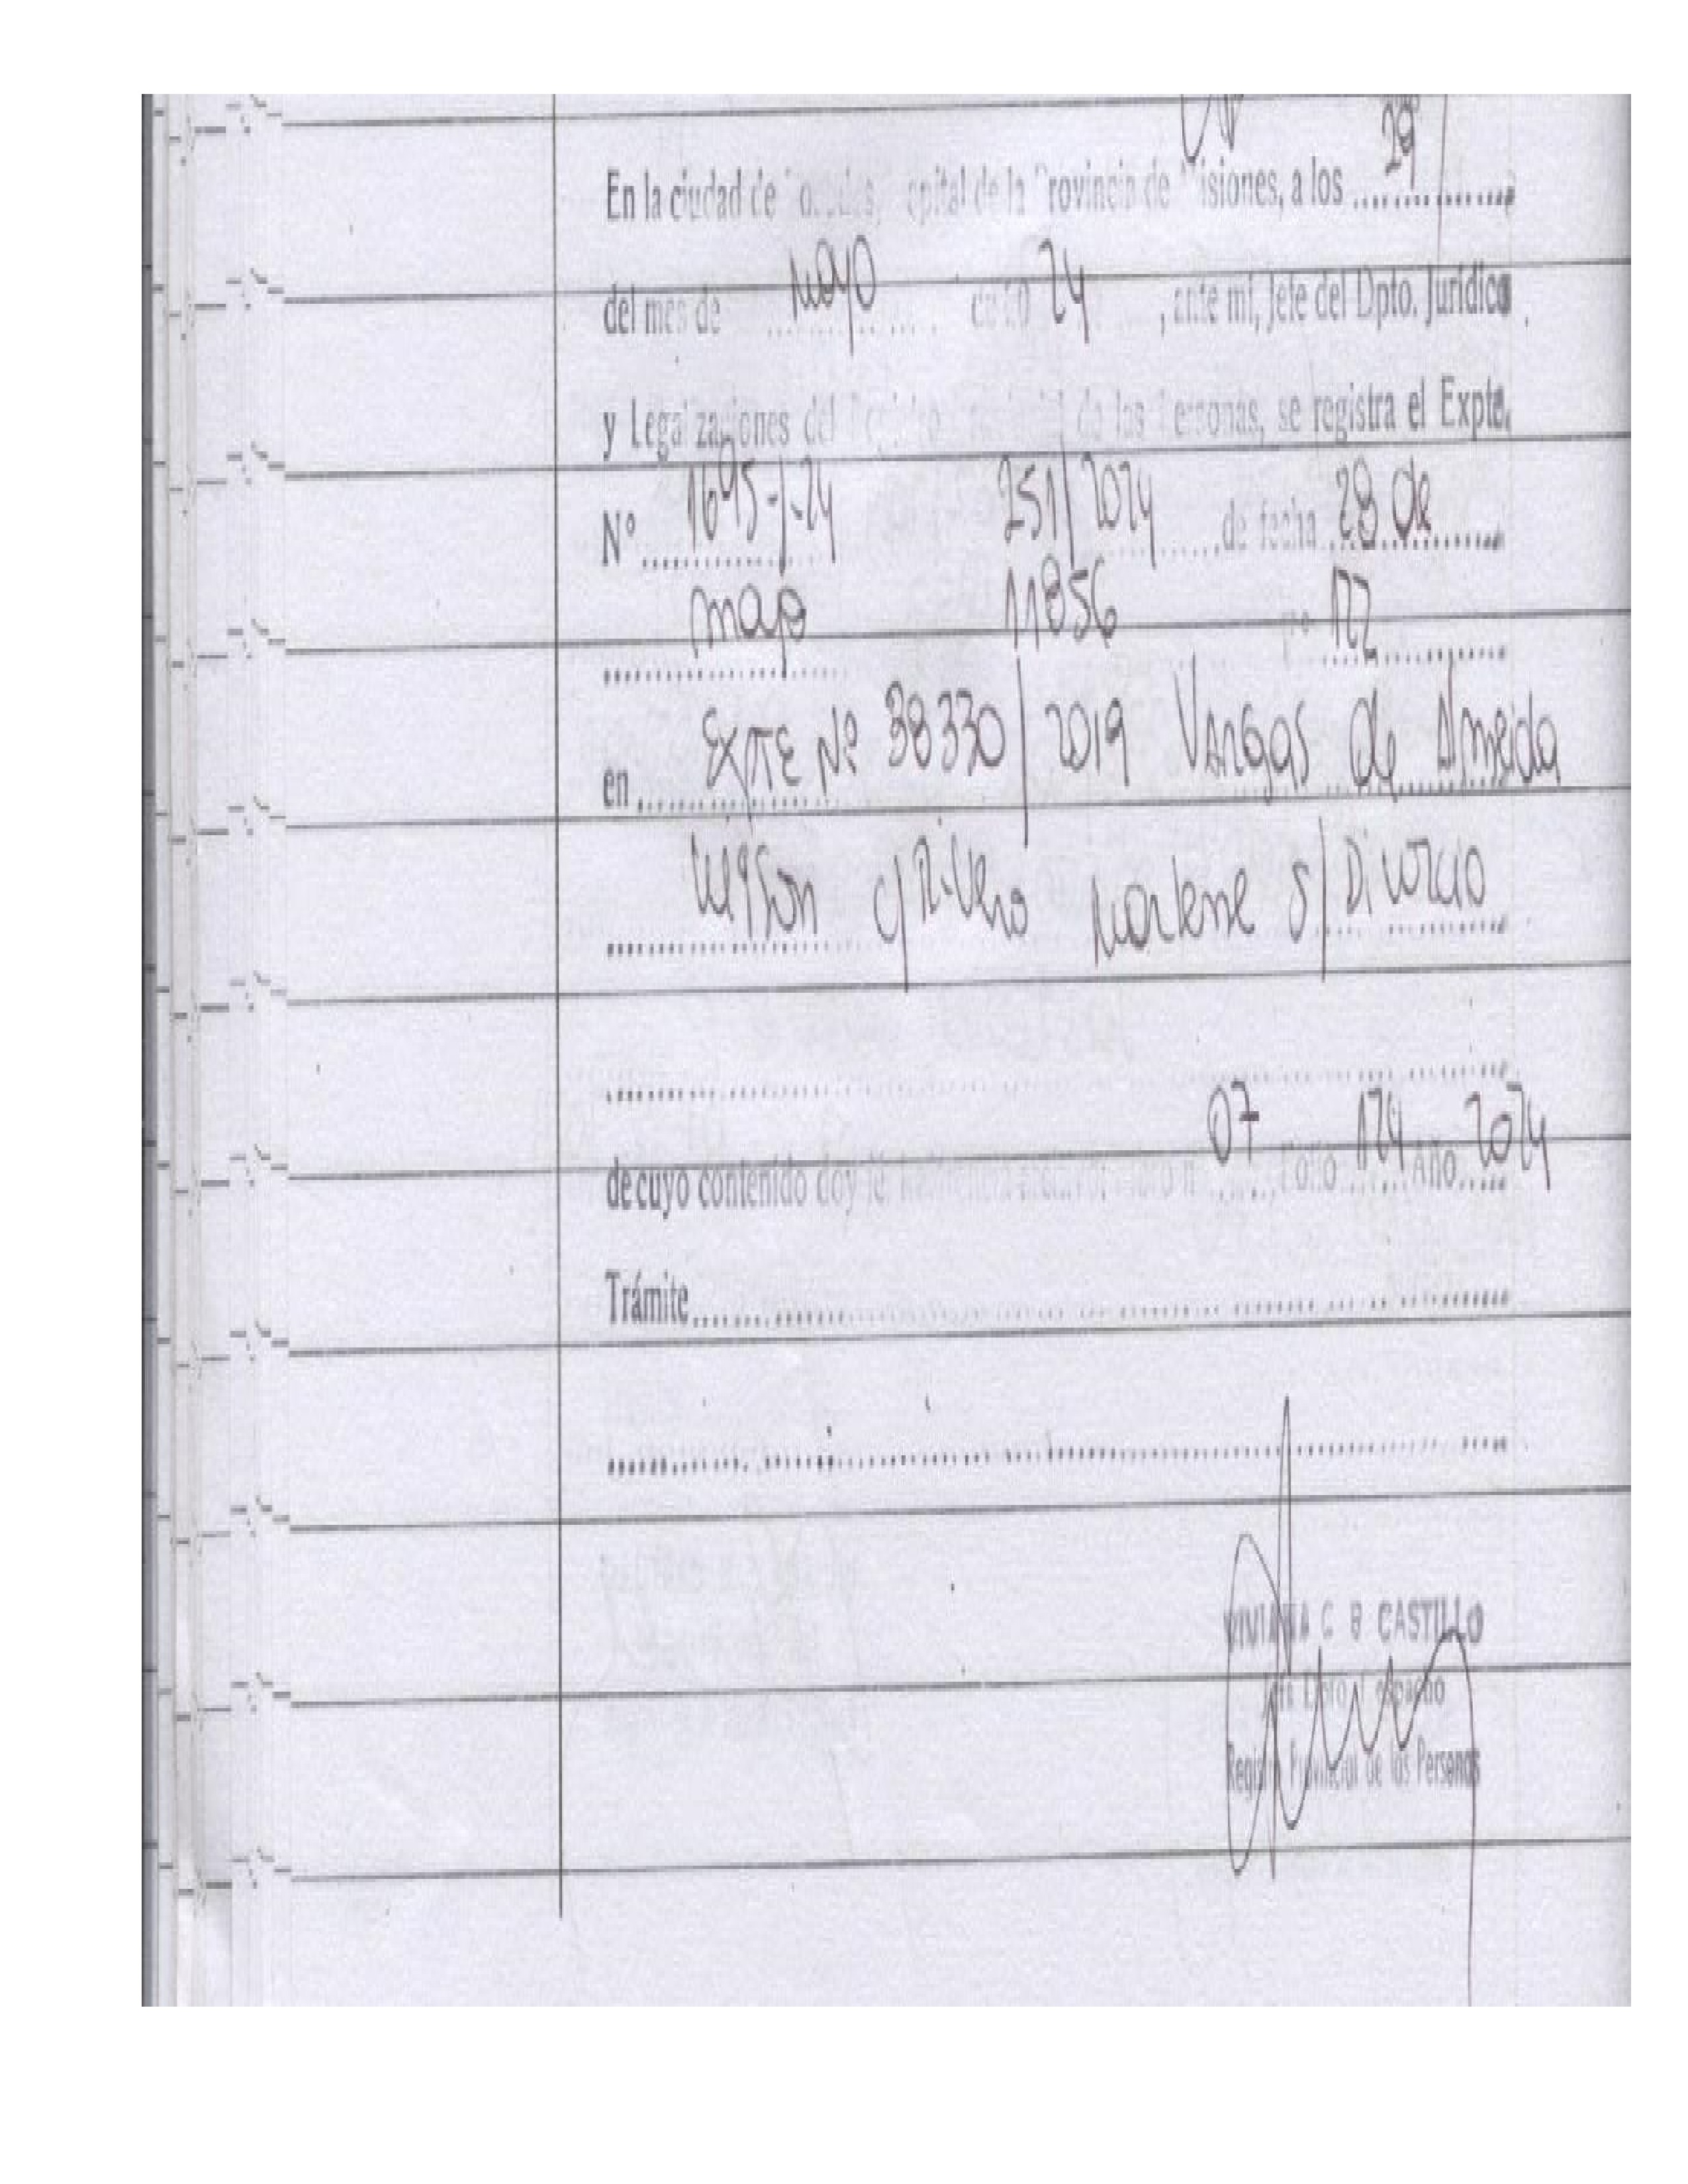 29
En la ciudad de Posadas, Capital de la Provincia de Misiones, a los
del mes de mayo de 20 24, ante mi, Jefe del Dpto. Jurídico
y Legalizaciones del Registro Provincial de las Personas, se registra el Expte.
Nº 1695-J-24 251/2024 de fecha 28 de
mayo 11856 122
en EXPTE Nº 38330/2019 Vargas de Almeida
c/ Marlene s/ Divorcio
07 124 2024
de cuyo contenido doy fé Folio Año
Trámite
VIVIANA C B CASTILLO
Jefa Dpto Despacho
Registro Provincial de las Personas